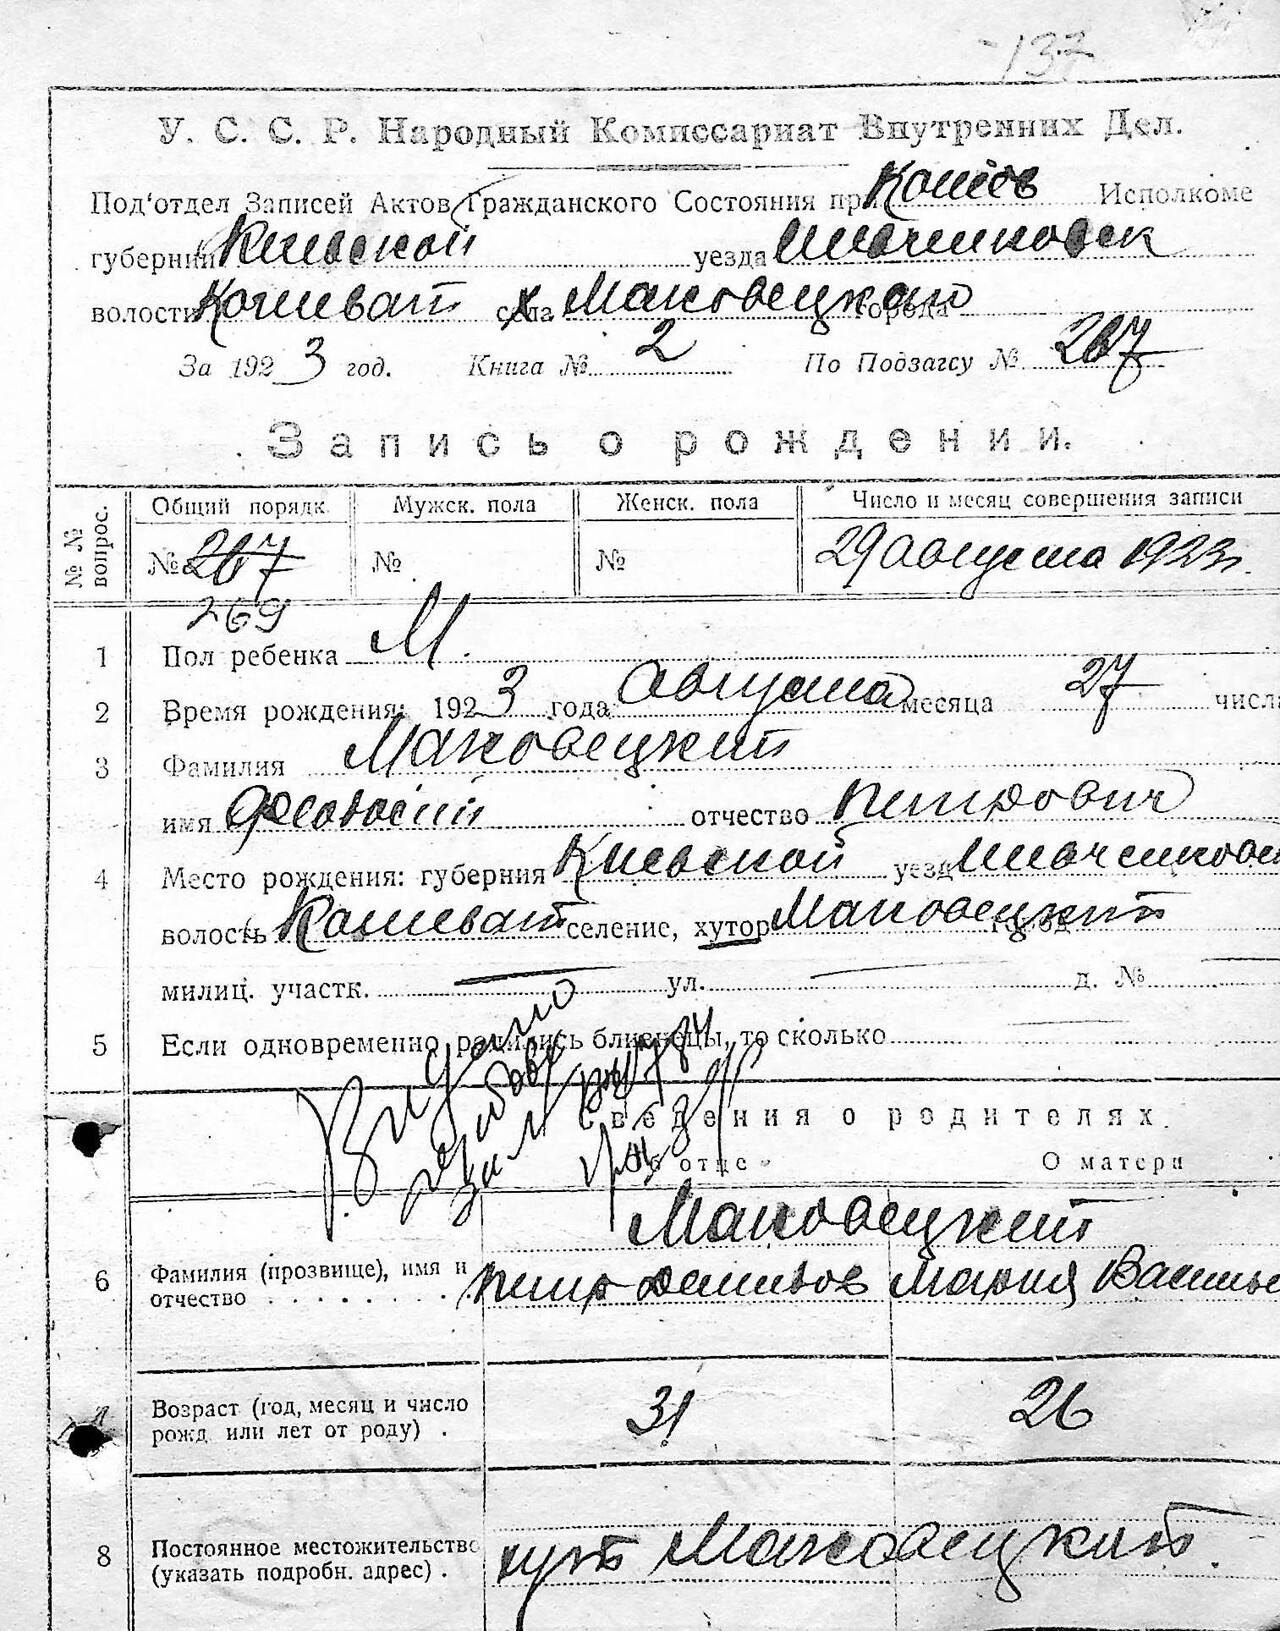 137
У. С. С. Р. Народный Комиссариат Внутренних Дел.
Под'отдел Записей Актов Гражданского Состояния при Исполкоме
губернии Киевской уезда
волости Кошеват села х Маковецкаго города
За 1923 год. Книга № 2 По Подзагсу № 267
Запись о рождении.
№ № вопрос. Общий порядк. Мужск. пола Женск. пола Число и месяц совершения записи
№ 267 № № 29 августа 1923 г.
269
1 Пол ребенка М.
2 Время рождения: 1923 года августа месяца 27 числа
3 Фамилия Маковецкий
имя Феодосий отчество Петрович
4 Место рождения: губерния Киевской уезд
волость Кошеват селение, хутор Маковецкий город
милиц. участк. — ул. — д. № —
5 Если одновременно родились близнецы, то сколько —
Видено
Сведения о родителях.
Об отце О матери
Маковецкий
6 Фамилия (прозвище), имя и отчество Петр Демидов Мария Василье
7 Возраст (год, месяц и число рожд. или лет от роду) . 31 26
8 Постоянное местожительство (указать подробн. адрес) . хут Маковецкий.